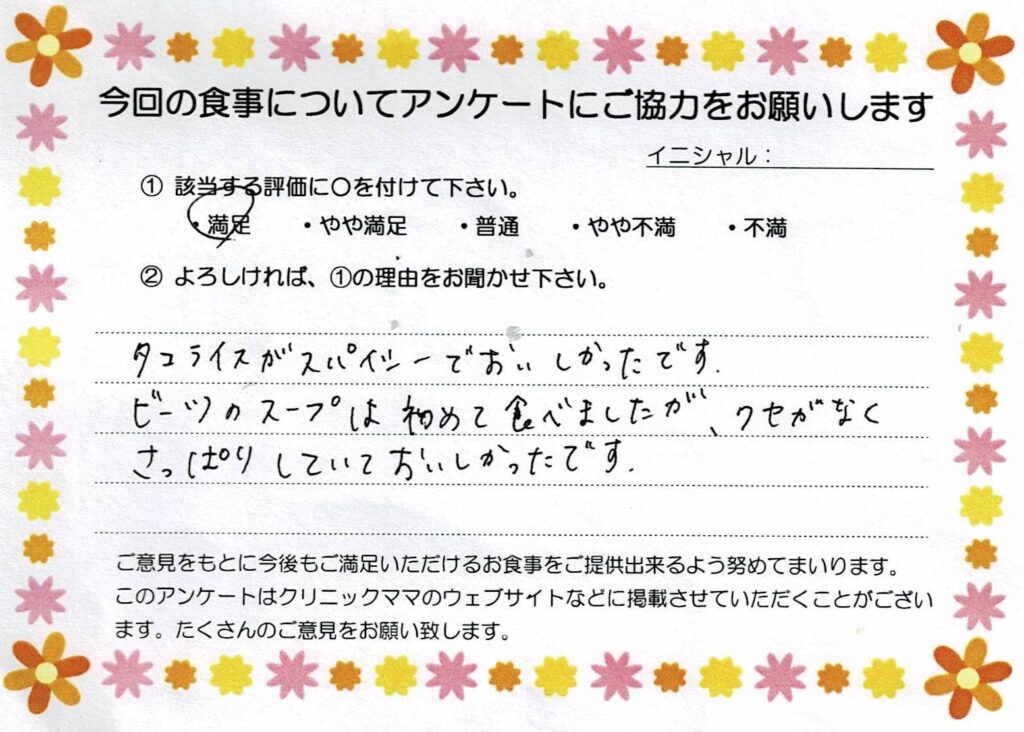 今回の食事についてアンケートにご協力をお願いします
イニシャル：
① 該当する評価に〇を付けて下さい。
・満足 ・やや満足 ・普通 ・やや不満 ・不満
② よろしければ、①の理由をお聞かせ下さい。
タコライスがスパイシーでおいしかったです.
ビーツのスープは初めて食べましたが、クセがなく
さっぱりしていておいしかったです.
ご意見をもとに今後もご満足いただけるお食事をご提供出来るよう努めてまいります。
このアンケートはクリニックママのウェブサイトなどに掲載させていただくことがござい
ます。たくさんのご意見をお願い致します。